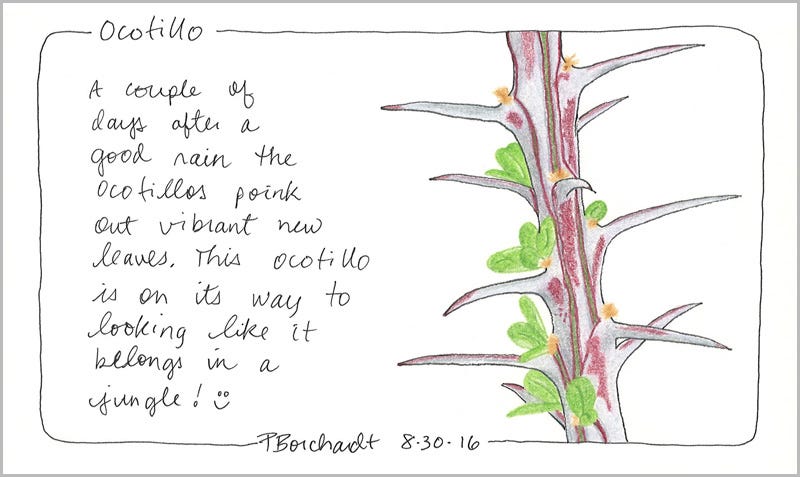 Ocotillo
A couple of
days after a
good rain the
ocotillos poink
out vibrant new
leaves. This ocotillo
is on its way to
looking like it
belongs in a
jungle! :)
PBorchardt 8-30-16